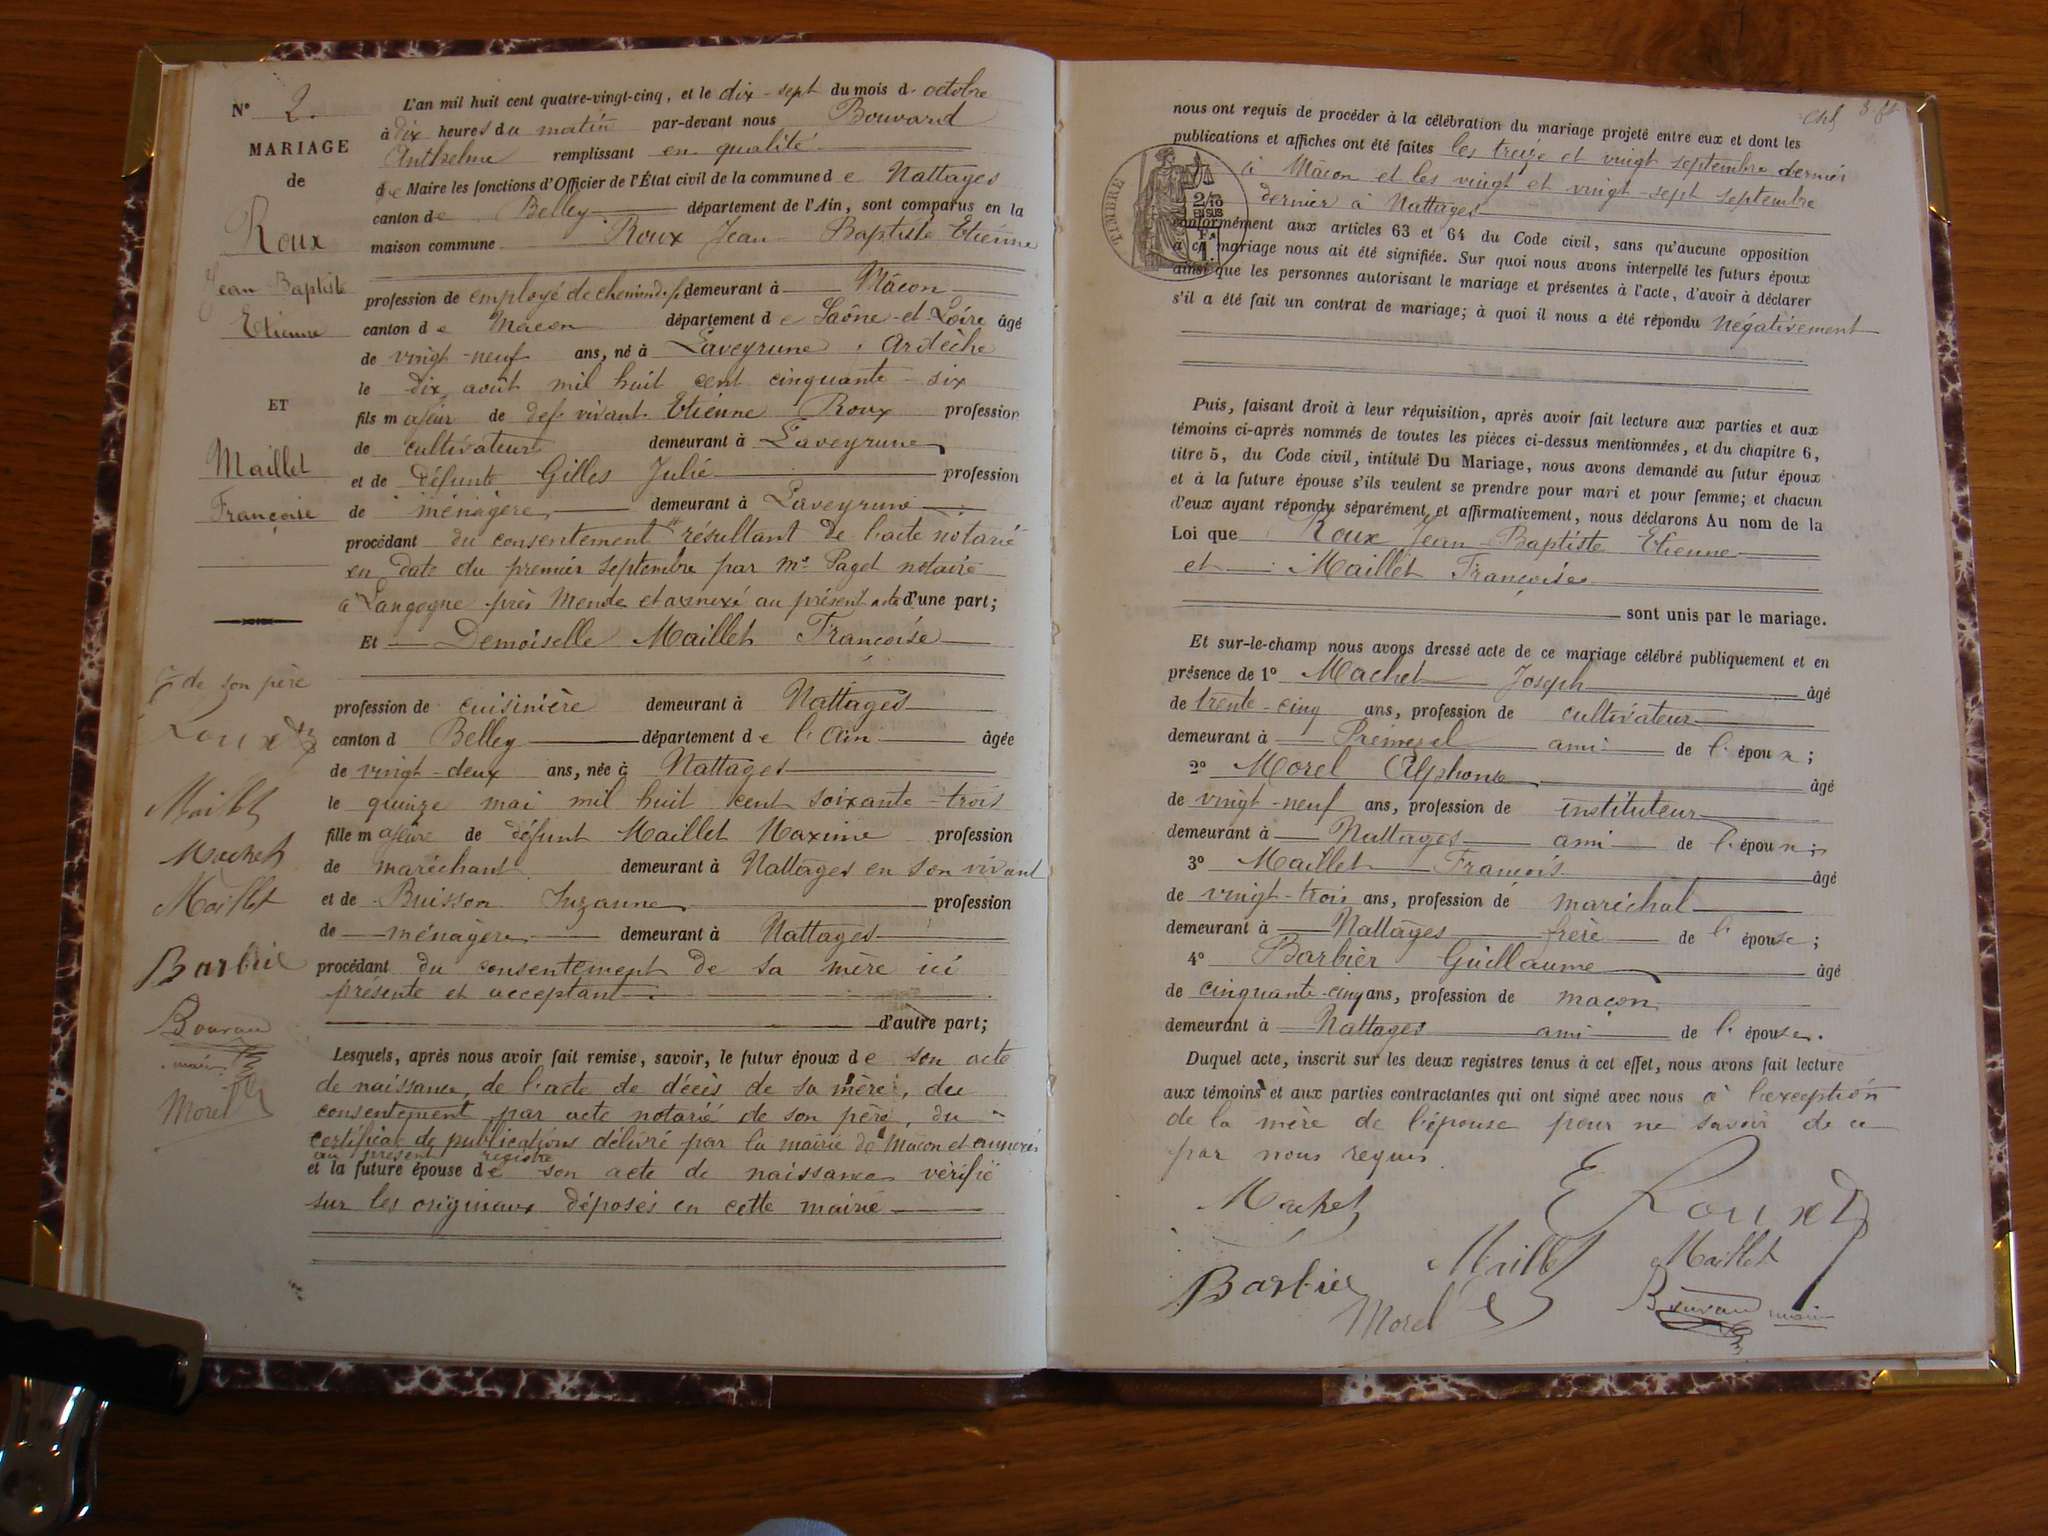 N° 2.
MARIAGE
de
Roux
Jean Baptiste
Etienne
ET
Maillet
Françoise
de son père
Roux
Maillet
Machet
Maillet
Barbier
Bouvard
maire
Morel
L'an mil huit cent quatre-vingt-cinq, et le dix-sept du mois d octobre
à dix heures du matin par-devant nous Bouvard
Anthelme remplissant en qualité
de Maire les fonctions d'Officier de l'État civil de la commune de Nattages
canton de Belley département de l'Ain, sont comparus en la
maison commune Roux Jean Baptiste Etienne
profession de employé de chemin de f. demeurant à Mâcon
canton de Macon département de Saône-et-Loire âgé
de vingt-neuf ans, né à Laveyrune, Ardèche
le dix août mil huit cent cinquante-six
fils majeur de def vivant Etienne Roux profession
de cultivateur demeurant à Laveyrune
et de défunte Gilles Julie profession
de ménagère, demeurant à Laveyrune
procédant du consentement résultant de l'acte notarié
en date du premier septembre par Me Paget notaire
à Langogne près Mende et annexé au présent acte d'une part;
Et Demoiselle Maillet Françoise
profession de cuisinière demeurant à Nattages
canton d Belley département de l'Ain âgée
de vingt-deux ans, née à Nattages
le quinze mai mil huit cent soixante-trois
fille majeure de défunt Maillet Maxime profession
de maréchant demeurant à Nattages en son vivant
et de Buisson Suzanne profession
de ménagère demeurant à Nattages
procédant du consentement de sa mère ici
présente et acceptant
d'autre part;
Lesquels, après nous avoir fait remise, savoir, le futur époux de son acte
de naissance, de l'acte de décès de sa mère, du
consentement par acte notarié de son père, du
certificat de publications délivré par la mairie de Mâcon et annexés
au présent registre
et la future épouse de son acte de naissance vérifié
sur les originaux déposés en cette mairie
3 ft
nous ont requis de procéder à la célébration du mariage projeté entre eux et dont les
publications et affiches ont été faites les treize et vingt septembre dernier
à Mâcon et les vingt et vingt-sept septembre
dernier à Nattages
TIMBRE
2/10
EN SUS
1 F.
conformément aux articles 63 et 64 du Code civil, sans qu'aucune opposition
à ce mariage nous ait été signifiée. Sur quoi nous avons interpellé les futurs époux
ainsi que les personnes autorisant le mariage et présentes à l'acte, d'avoir à déclarer
s'il a été fait un contrat de mariage; à quoi il nous a été répondu négativement
Puis, faisant droit à leur réquisition, après avoir fait lecture aux parties et aux
témoins ci-après nommés de toutes les pièces ci-dessus mentionnées, et du chapitre 6,
titre 5, du Code civil, intitulé Du Mariage, nous avons demandé au futur époux
et à la future épouse s'ils veulent se prendre pour mari et pour femme; et chacun
d'eux ayant répondu séparément et affirmativement, nous déclarons Au nom de la
Loi que Roux Jean-Baptiste Etienne
et Maillet Françoise
sont unis par le mariage.
Et sur-le-champ nous avons dressé acte de ce mariage célébré publiquement et en
présence de 1° Machet Joseph âgé
de trente-cinq ans, profession de cultivateur
demeurant à Prémeyzel ami de l'époux;
2° Morel Alphonse âgé
de vingt-neuf ans, profession de instituteur
demeurant à Nattages ami de l'époux;
3° Maillet François âgé
de vingt-trois ans, profession de maréchal
demeurant à Nattages frère de l'épouse;
4° Barbier Guillaume âgé
de cinquante-cinq ans, profession de maçon
demeurant à Nattages ami de l'épouse.
Duquel acte, inscrit sur les deux registres tenus à cet effet, nous avons fait lecture
aux témoins et aux parties contractantes qui ont signé avec nous à l'exception
de la mère de l'épouse pour ne savoir de ce
par nous requis.
Machet E Roux
Maillet Maillet
Barbier Bouvard maire
Morel